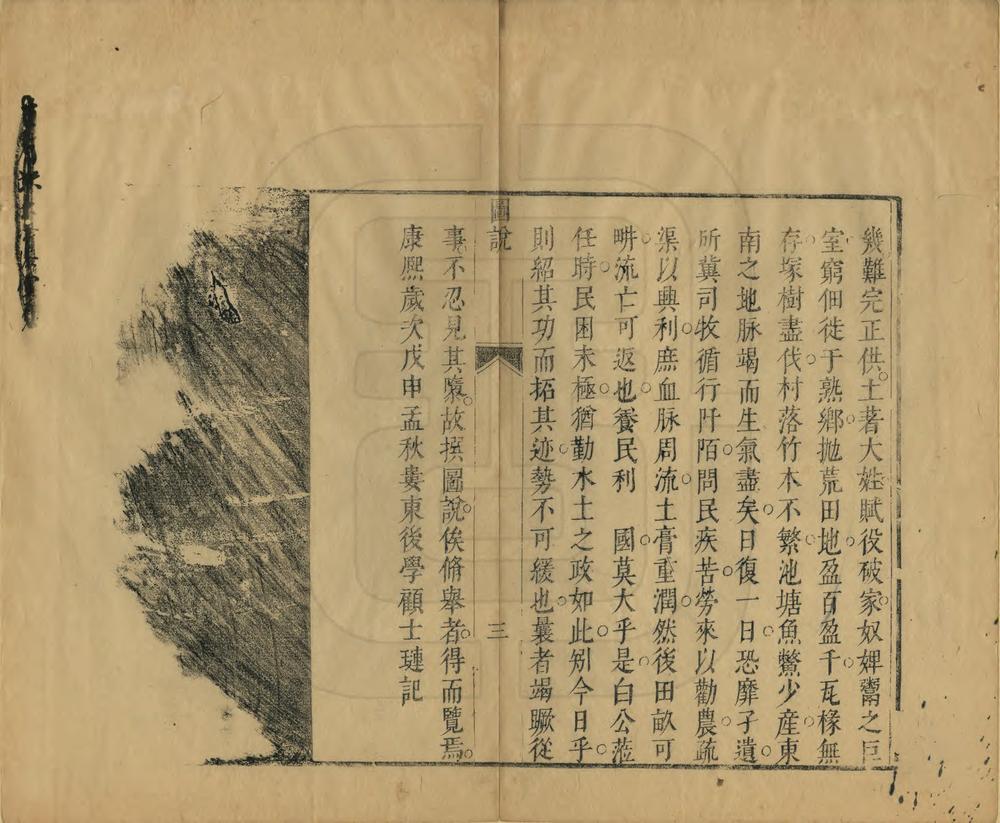 幾難完正供土著大姓賦役破家奴婢鬻之巨
室窮佃徙于熟鄉拋荒田地盈百盈千瓦椽無
存塚樹盡伐村落竹木不繁池塘魚鱉少産東
南之地脉竭而生氣盡矣日復一日恐靡孑遺
所冀司牧循行阡陌問民疾苦勞來以勸農疏
渠以興利庶血脉周流土膏重潤然後田畝可
畊流亡可返也養民利　國莫大乎是白公蒞
任時民困未極猶勤水土之政如此矧今日乎
則紹其功而拓其迹勢不可緩也曩者竭蹶從
圖說
三
事不忍見其隳故撰圖說俟脩舉者得而覽焉
康熙歲次戊申孟秋婁東後學顧士璉記